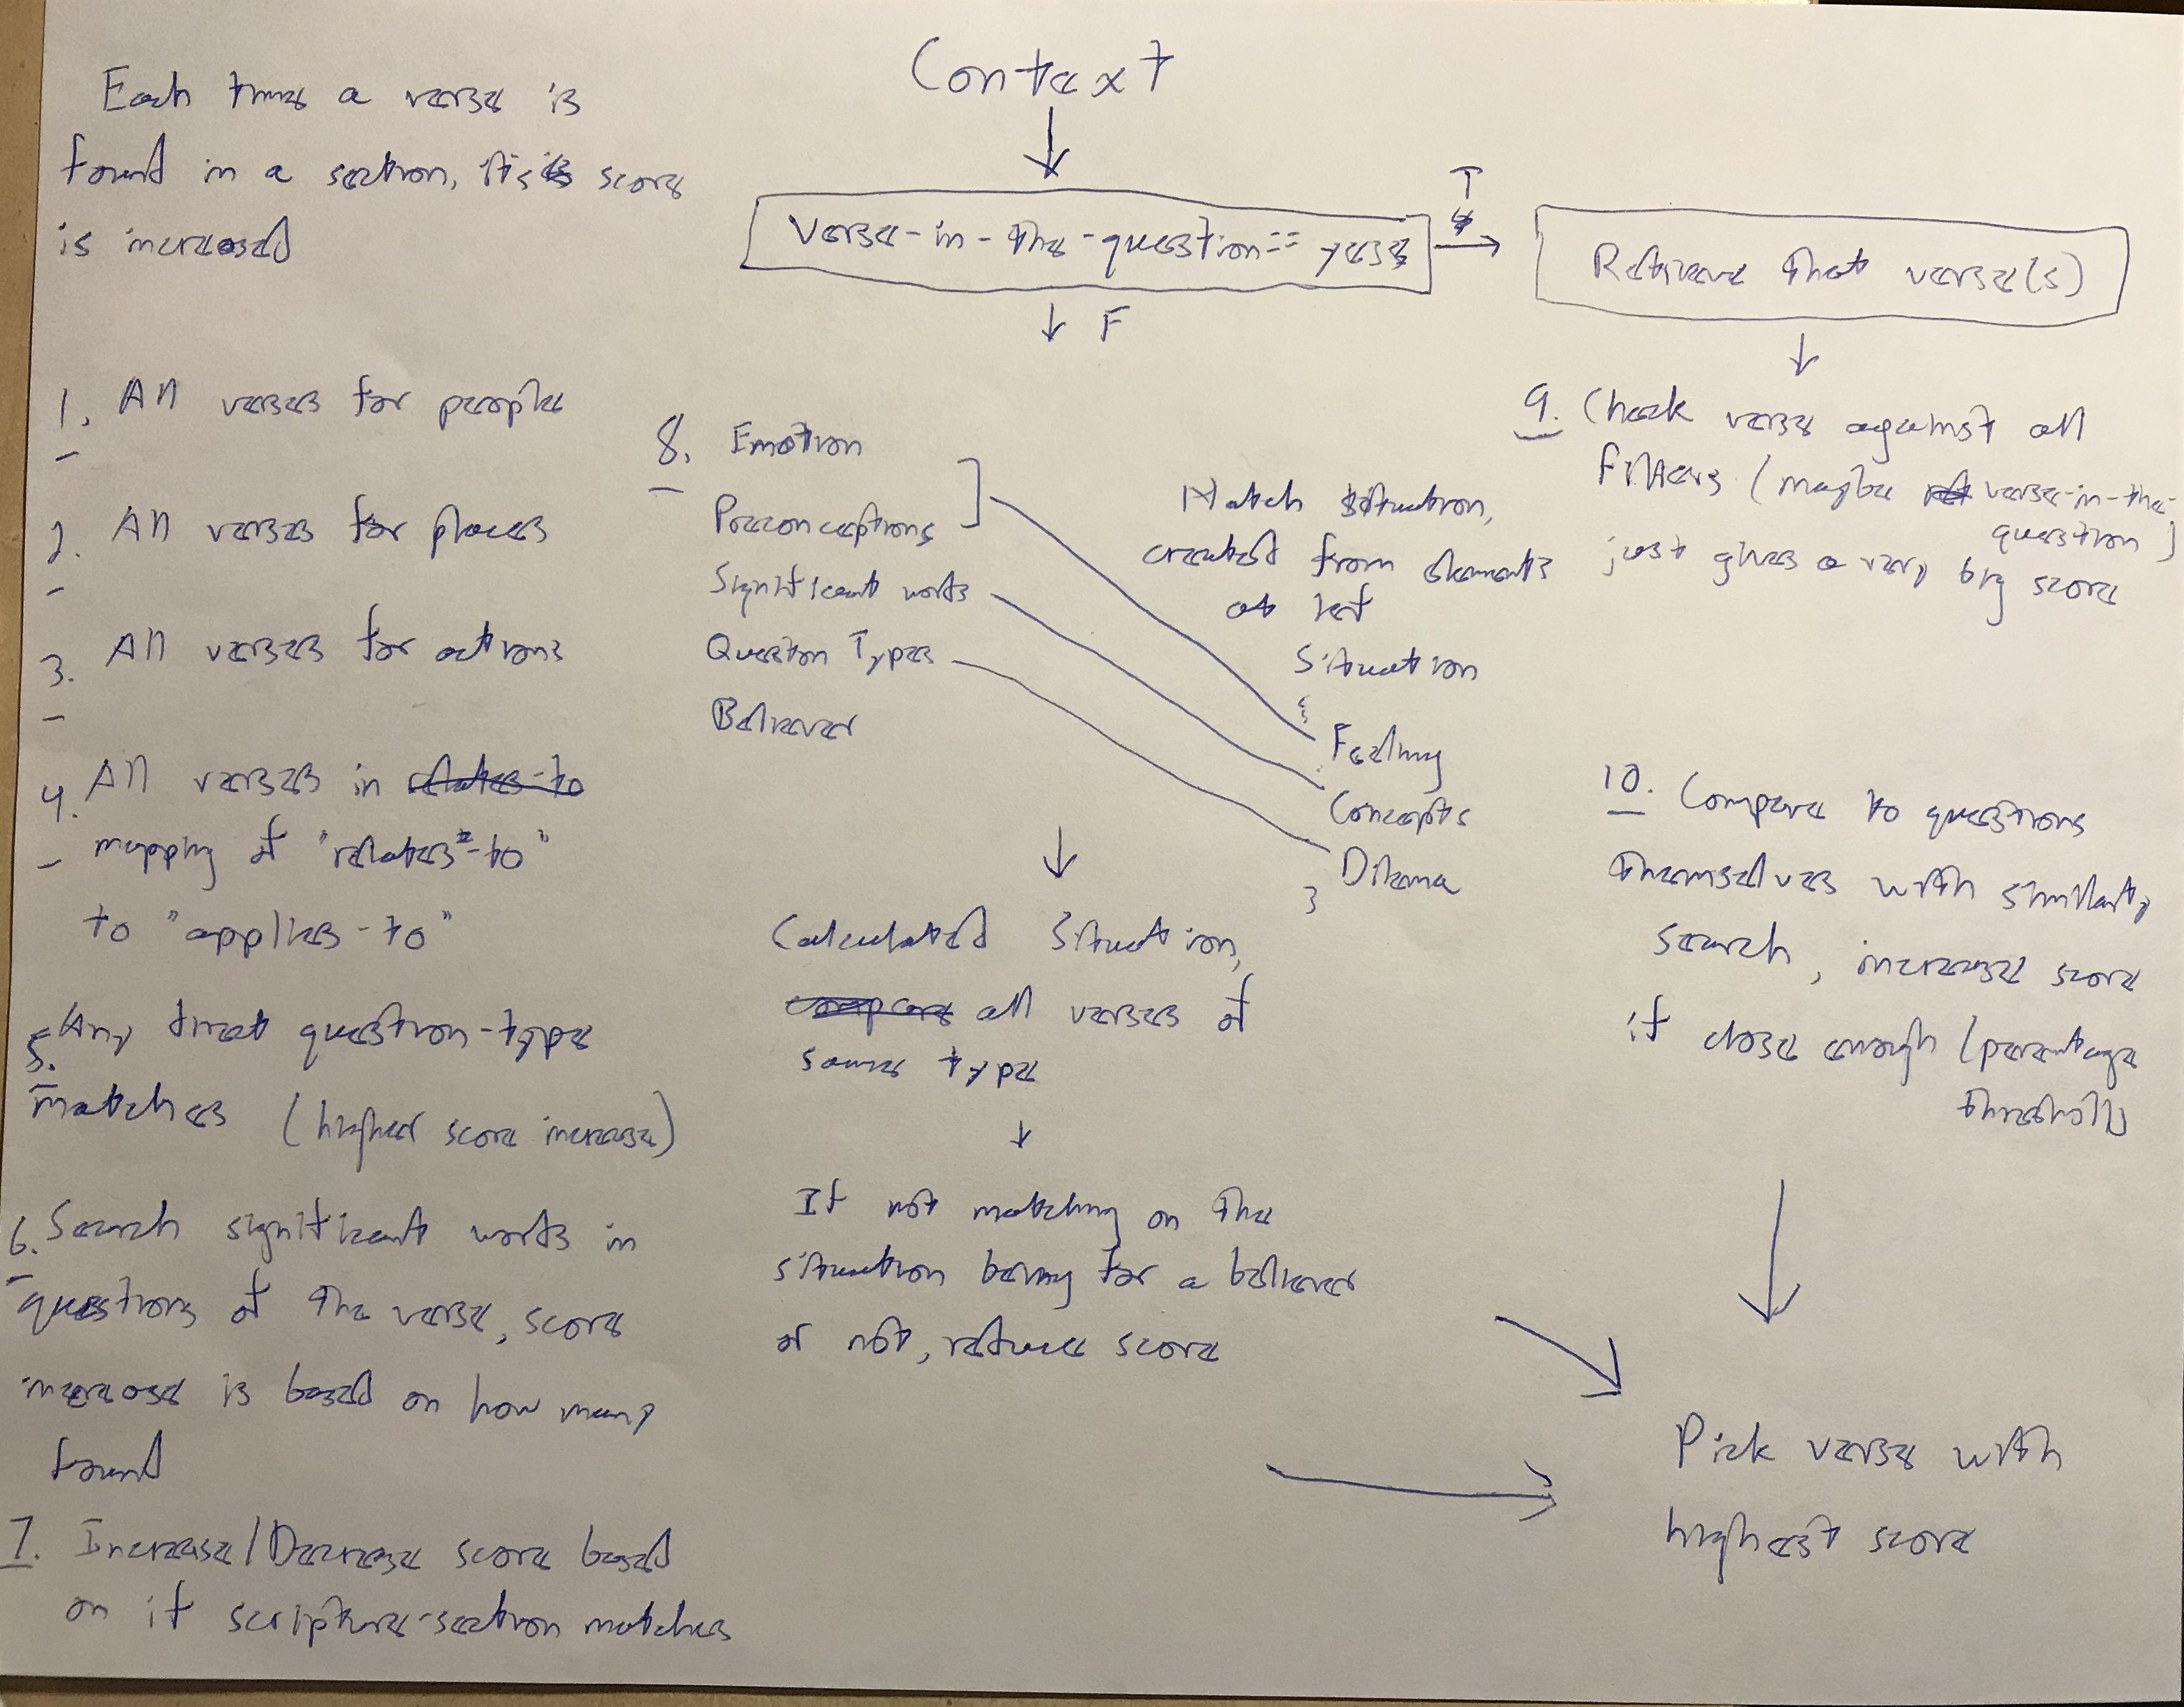 Context
Each time a verse is
found in a section, its score
is increased
Verse-in-the-question == yes
T
Retrieve that verse(s)
F
1. All verses for people
2. All verses for places
3. All verses for actions
4. All verses in relates-to
mapping of "relates-to"
to "applies-to"
5. Any direct question-type
matches (higher score increase)
6. Search significant words in
questions of the verse, score
increase is based on how many
found
7. Increase/Decrease score based
on if scripture-section matches
8. Emotion
Preconceptions
Significant words
Question Types
Believer
Match situation,
created from elements
at left
Situation
{
Feeling
Concepts
Dilema
}
Calculated situation,
compare all verses of
same type
If not matching on the
situation being for a believer
or not, reduce score
9. Check verse against all
filters (maybe verse-in-the-
question)
just gives a very big score
10. Compare to questions
themselves with similarity
search, increase score
if close enough (percentage
threshold)
Pick verse with
highest score